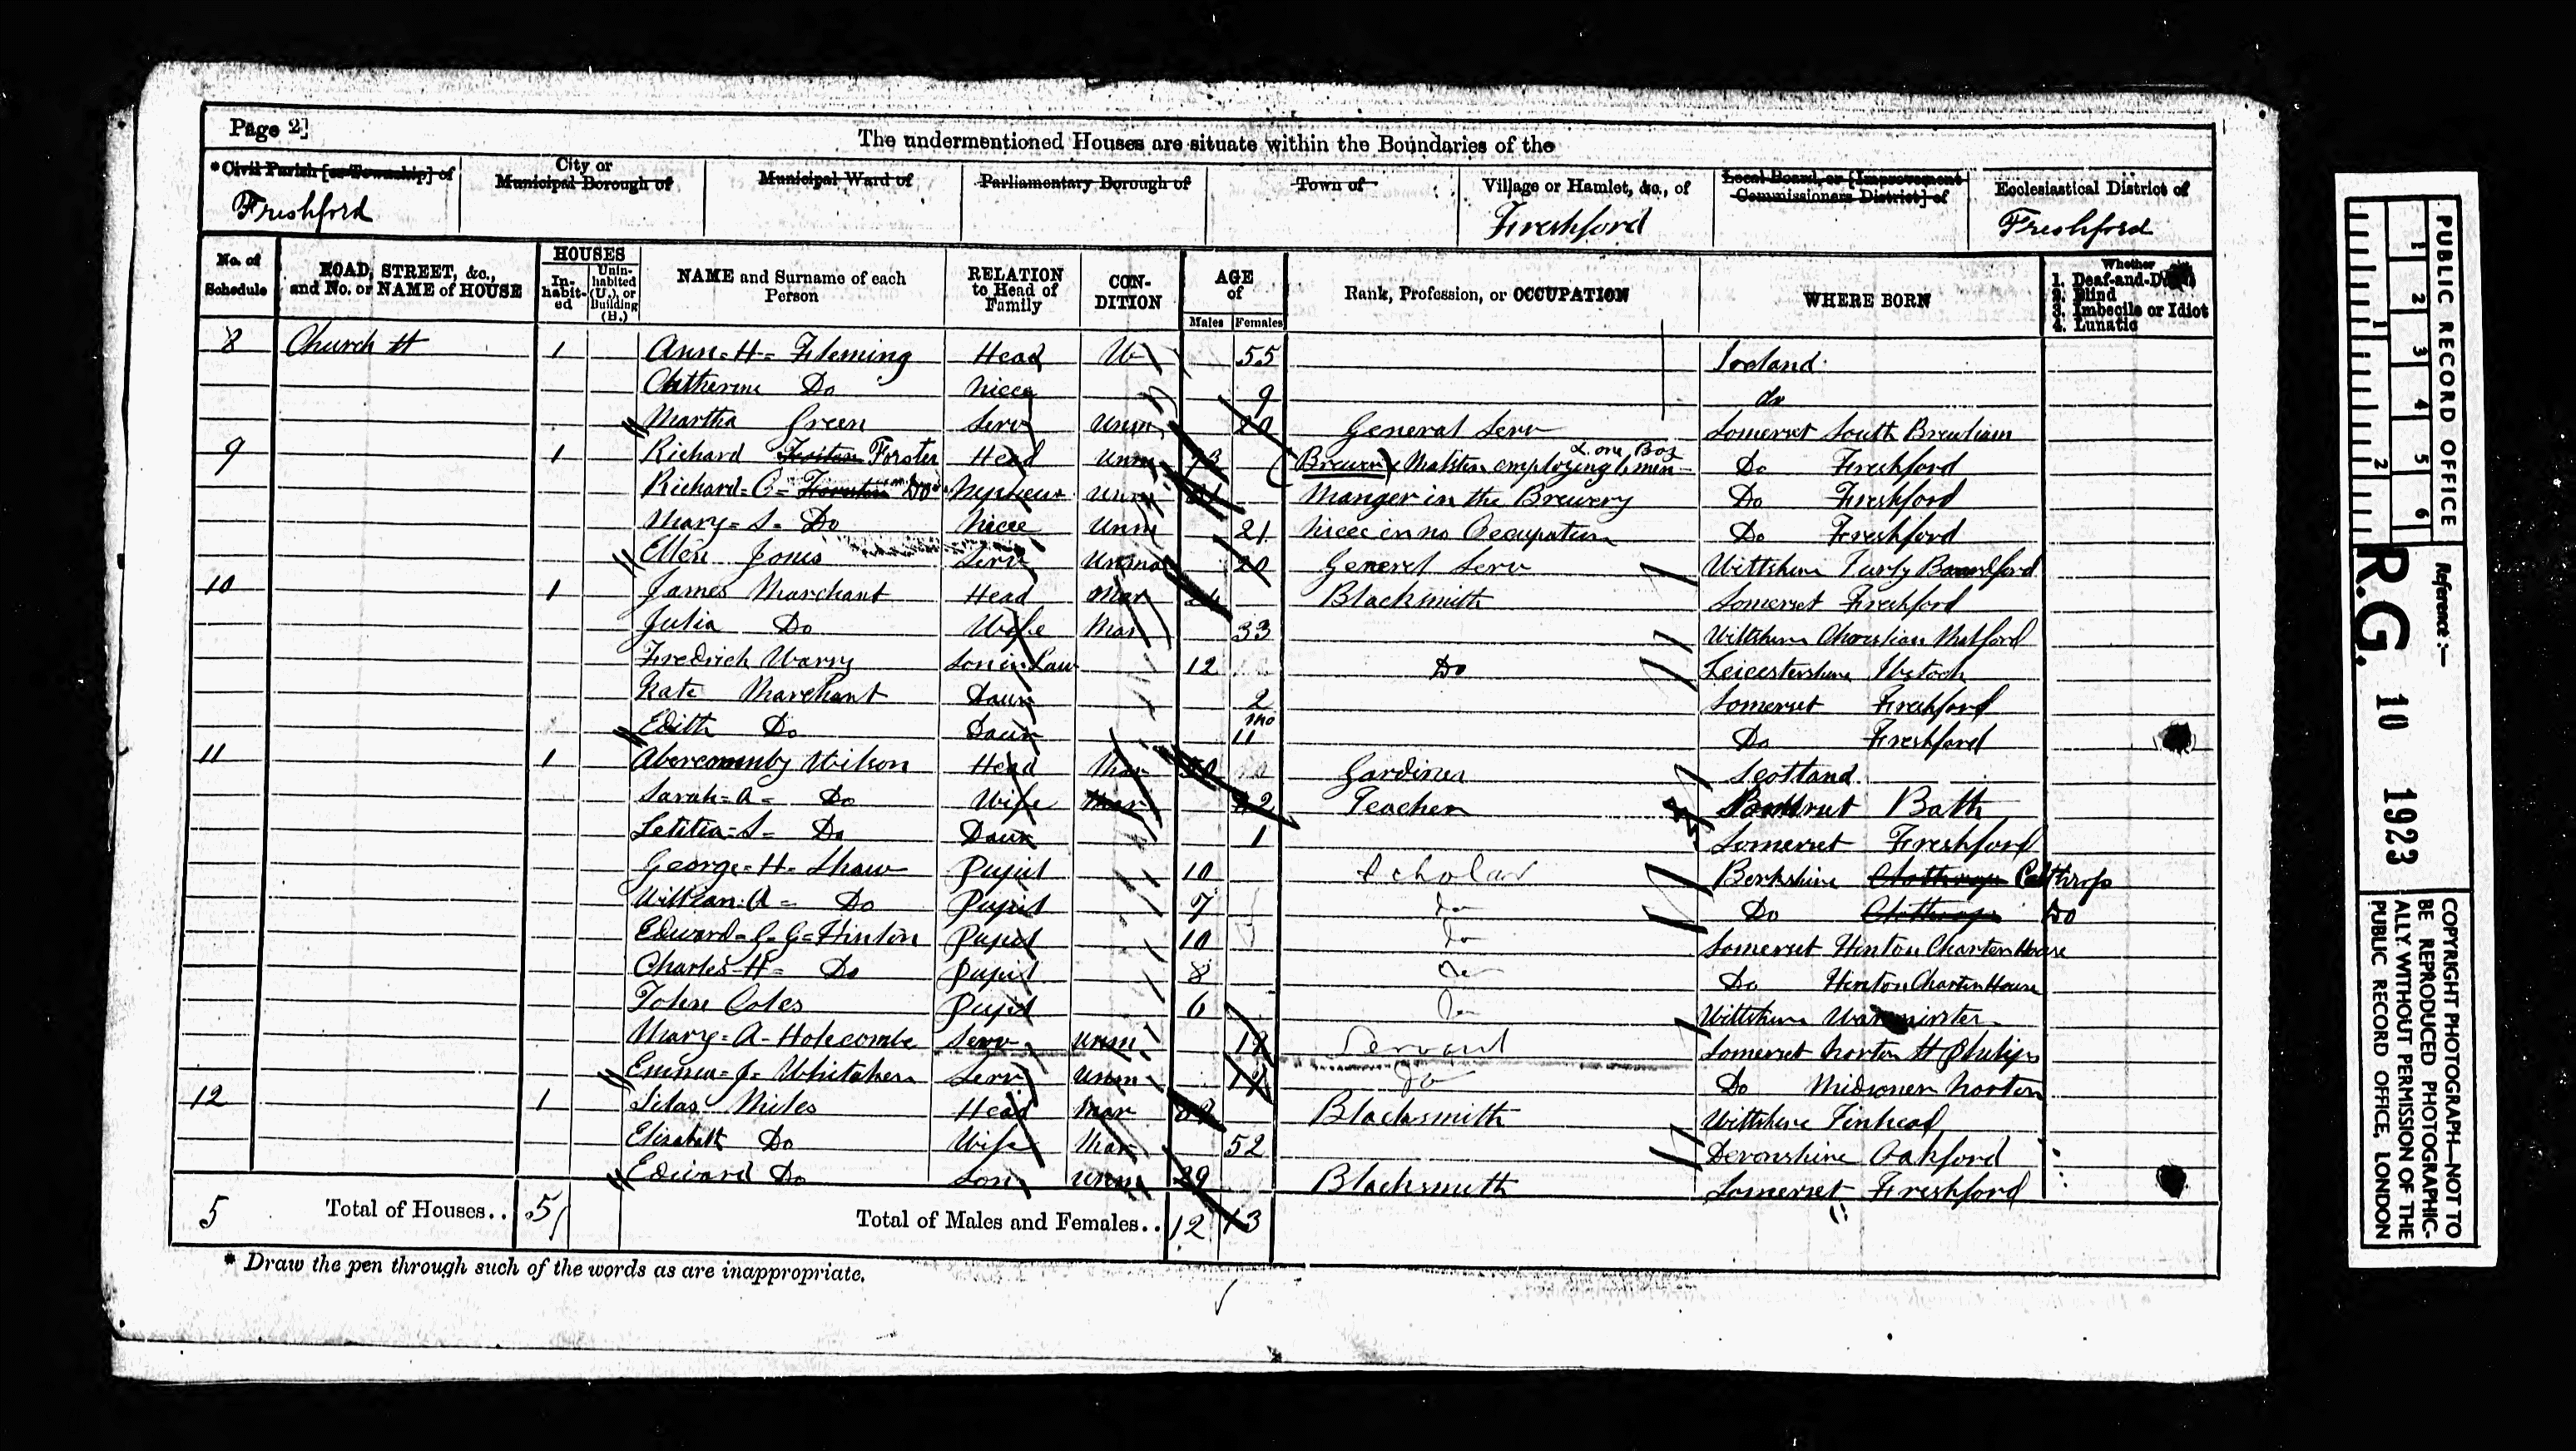 Page 2]
The undermentioned Houses are situate within the Boundaries of the
*Civil Parish [or Township] of
City or Municipal Borough of
Municipal Ward of
Parliamentary Borough of
Town of
Village or Hamlet, &c., of
Local Board, or [Improvement Commissioners District] of
Ecclesiastical District of
Freshford
Freshford
Freshford
No. of Schedule
ROAD, STREET, &c., and No. or NAME of HOUSE
HOUSES
In-habit-ed
Unin-habited (U.), or Building (B.)
NAME and Surname of each Person
RELATION to Head of Family
CON-DITION
AGE of
Males
Females
Rank, Profession, or OCCUPATION
WHERE BORN
Whether
1. Deaf-and-Dumb
2. Blind
3. Imbecile or Idiot
4. Lunatic
8 Church St 1 Ann-H- Fleming Head W 55 Ireland
Catherine Do Niece 9 do
Martha Green Serv Unm 20 General Serv Somerset South Brewham
9 1 Richard Forster Head Unm 73 Brewer & Malster employing 6 men & one Boy Do Freshford
Richard-C- Do Nephew Unm Manger in the Brewery Do Freshford
Mary-S- Do Niece Unm 21 Niece in no Occupation Do Freshford
Ellen Jones Serv Unm 20 Generel Serv Wiltshire Turly Bradford
10 1 James Marchant Head Mar Blacksmith Somerset Freshford
Julia Do Wife Mar 33 Wiltshire Christian Malford
Fredrick Warry Son in Law 12 Do Leicestershire Ibstock
Kate Marchant Daur 2 Somerset Freshford
Edith Do Daur 11 mo Do Freshford
11 1 Abercromby Wilson Head Mar 50 Gardiner Scotland
Sarah-A- Do Wife Mar 42 Teacher Somerset Bath
Letitia-S- Do Daur 1 Somerset Freshford
George-H- Shaw Pupil 10 Scholar Berkshire Calthrop
William-A- Do Pupil 7 Do Do Do
Edward-G-G-Hinton Pupil 10 Do Somerset Hinton Charter House
Charles-H- Do Pupil 8 Do Do Hinton Charter House
John Coles Pupil 6 Do Wiltshire Warminster
Mary-A-Holecombe Serv Unm Servant Somerset Norton St Philips
Emma-J- Whitaker Serv Unm Do Do Midsomer Norton
12 1 Silas Miles Head Mar Blacksmith Wiltshire Tinhead
Elizabeth Do Wife Mar 52 Devonshire Oakford
Edward Do Son Unm 29 Blacksmith Somerset Freshford
5 Total of Houses.. 5 Total of Males and Females.. 12 13
* Draw the pen through such of the words as are inappropriate.
PUBLIC RECORD OFFICE
1 2 3 4 5 6
1 2
Reference :—
R.G. 10 1923
COPYRIGHT PHOTOGRAPH—NOT TO
BE REPRODUCED PHOTOGRAPHIC-
ALLY WITHOUT PERMISSION OF THE
PUBLIC RECORD OFFICE, LONDON